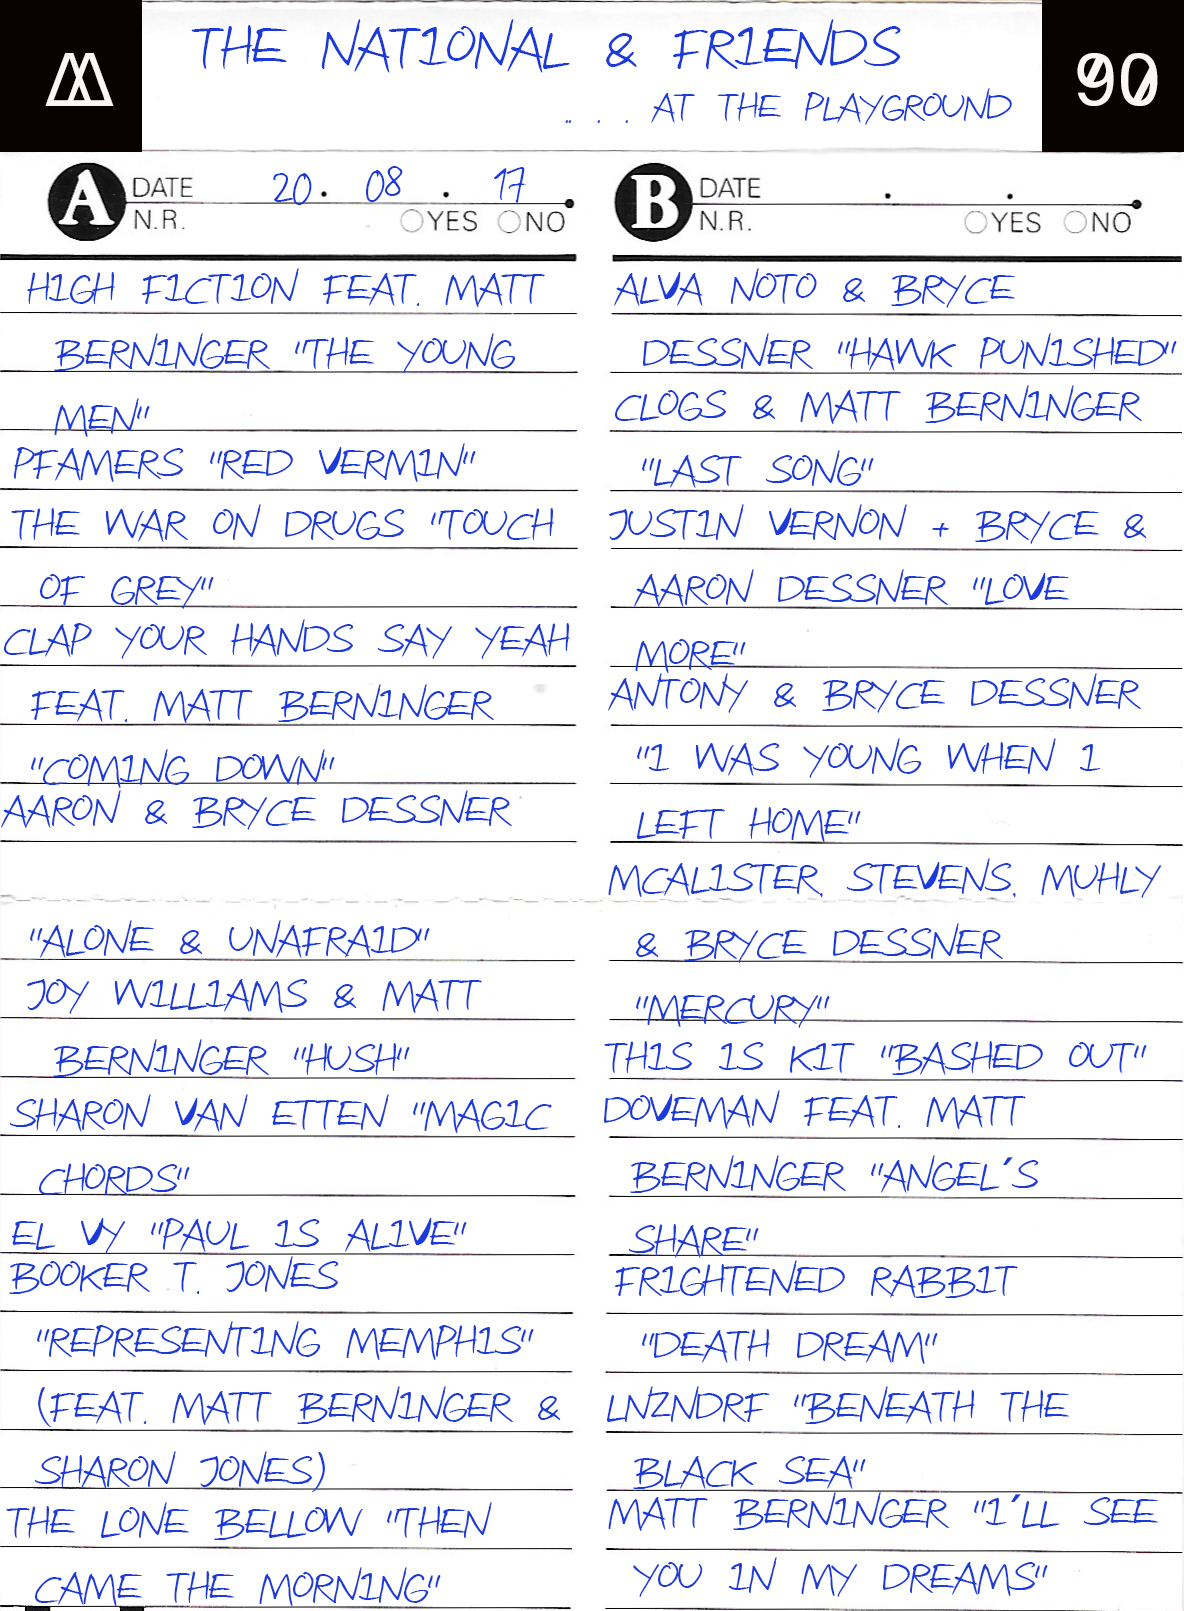 THE NATIONAL & FRIENDS
... AT THE PLAYGROUND
90
A DATE 20. 08 . 17
N.R. YES NO
HIGH FICTION FEAT. MATT
BERNINGER "THE YOUNG
MEN"
PFAMERS "RED VERMIN"
THE WAR ON DRUGS "TOUCH
OF GREY"
CLAP YOUR HANDS SAY YEAH
FEAT. MATT BERNINGER
"COMING DOWN"
AARON & BRYCE DESSNER
"ALONE & UNAFRAID"
JOY WILLIAMS & MATT
BERNINGER "HUSH"
SHARON VAN ETTEN "MAGIC
CHORDS"
EL VY "PAUL IS ALIVE"
BOOKER T. JONES
"REPRESENTING MEMPHIS"
(FEAT. MATT BERNINGER &
SHARON JONES)
THE LONE BELLOW "THEN
CAME THE MORNING"
B DATE . .
N.R. YES NO
ALVA NOTO & BRYCE
DESSNER "HAWK PUNISHED"
CLOGS & MATT BERNINGER
"LAST SONG"
JUSTIN VERNON + BRYCE &
AARON DESSNER "LOVE
MORE"
ANTONY & BRYCE DESSNER
"I WAS YOUNG WHEN I
LEFT HOME"
MCALISTER, STEVENS, MUHLY
& BRYCE DESSNER
"MERCURY"
THIS IS KIT "BASHED OUT"
DOVEMAN FEAT. MATT
BERNINGER "ANGEL´S
SHARE"
FRIGHTENED RABBIT
"DEATH DREAM"
LNZNDRF "BENEATH THE
BLACK SEA"
MATT BERNINGER "I´LL SEE
YOU IN MY DREAMS"